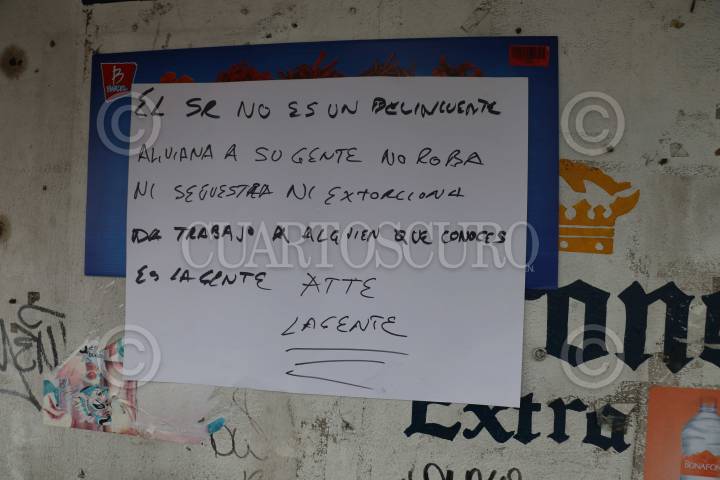 BARCEL
EL SR NO ES UN DELINCUENTE
ALIVIANA A SU GENTE NO ROBA
NI SEGUESTRA NI EXTORCIONA
DA TRABAJO A ALGUIEN QUE CONOCES
CUARTOSCURO
ES LA GENTE ATTE
LAGENTE
Extra
BONAFONT